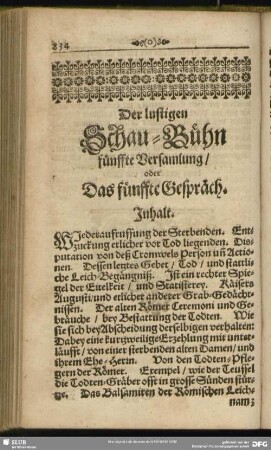 834
Der lustigen
Schau-Bühn
fünffte Versamlung/
oder
Das fünffte Gespräch.
Inhalt.
Wiederauffruffung der Sterbenden. Ent-
zuckung etlicher vor Tod liegenden. Dis-
putation von deß Cromwels Person uñ Actio-
nen. Dessen letztes Gebet/ Tod/ und stattli-
che Leich-Begängniß. Ist ein rechter Spie-
gel der Eitelkeit/ und Statisterey. Käisers
Augusti/ und etlicher anderer Grab-Gedächt-
nissen. Der alten Römer Ceremoni und Ge-
bräuche/ bey Bestattung der Todten. Wie
sie sich bey Abscheidung derselbigen verhalten:
Dabey eine kurtzweilige Erzehlung mit unt-
läufft/ von einer sterbenden alten Damen/ und
ihrem Ehe-Herrn. Von den Todten-Pfle-
gern der Römer. Exempel/ wie der Teuffel
die Todten-Gräber offt in grosse Sünden stür-
tze. Das Balsamiren der Römischen Leich-
nam;
SLUB
DFG